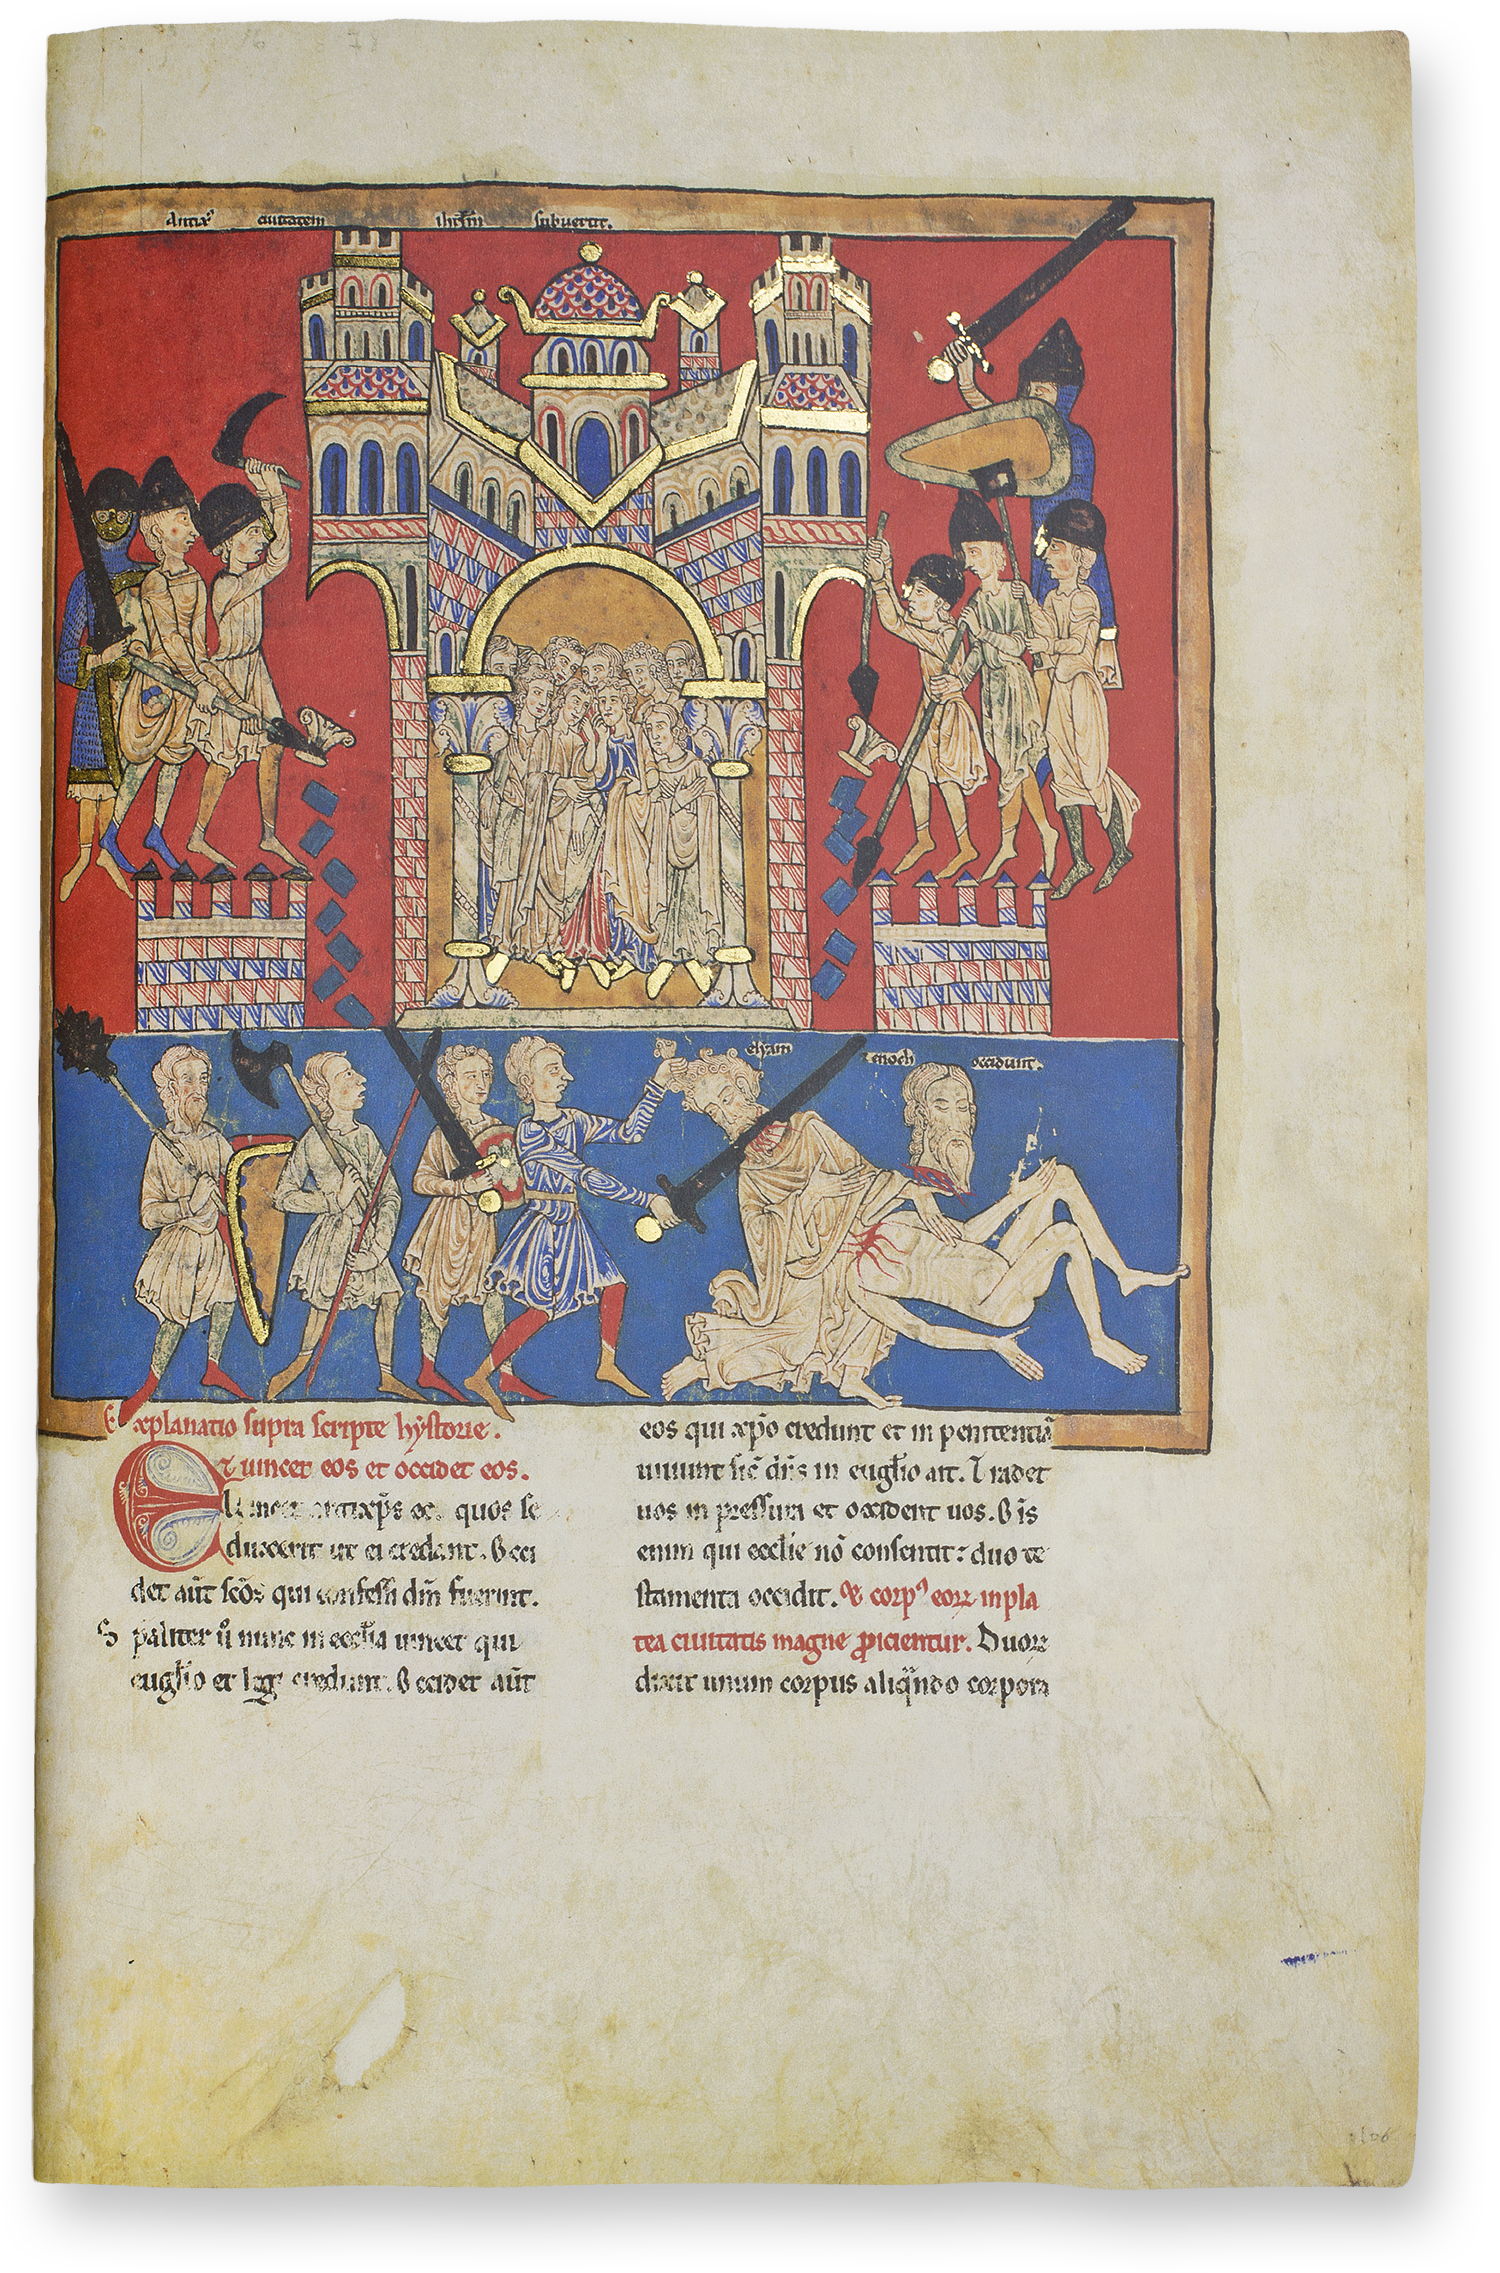 Antixᵖ̄ ciuitatem ihr̄lm̄ subuertit.
eliam enoch occidunt.
Explanatio supra scripte hẏstorie.
Et uincet eos et occidet eos.
Uincet antixp̄s eos quos se
duxerit ut ei credant. Occi
det aūt sc̄os qui confessi dn̄m fuerint.
Spaliter ū nunc in eccl̄ia uincet qui
eugl̄io et legi credunt. Occidet aūt
eos qui xp̄o credunt et in penitentiā
uiuunt sic̄ dn̄s in eugl̄io ait. Tradet
uos in pressura et occident uos. Oīs
enim qui eccl̄ie nō consentit: duo te
stamenta occidit. Et corpꝰ eoꝝ in pla
tea ciuitatis magne ꝓicientur. Duoꝝ
dixit unum corpus aliqn̄do corpora
106